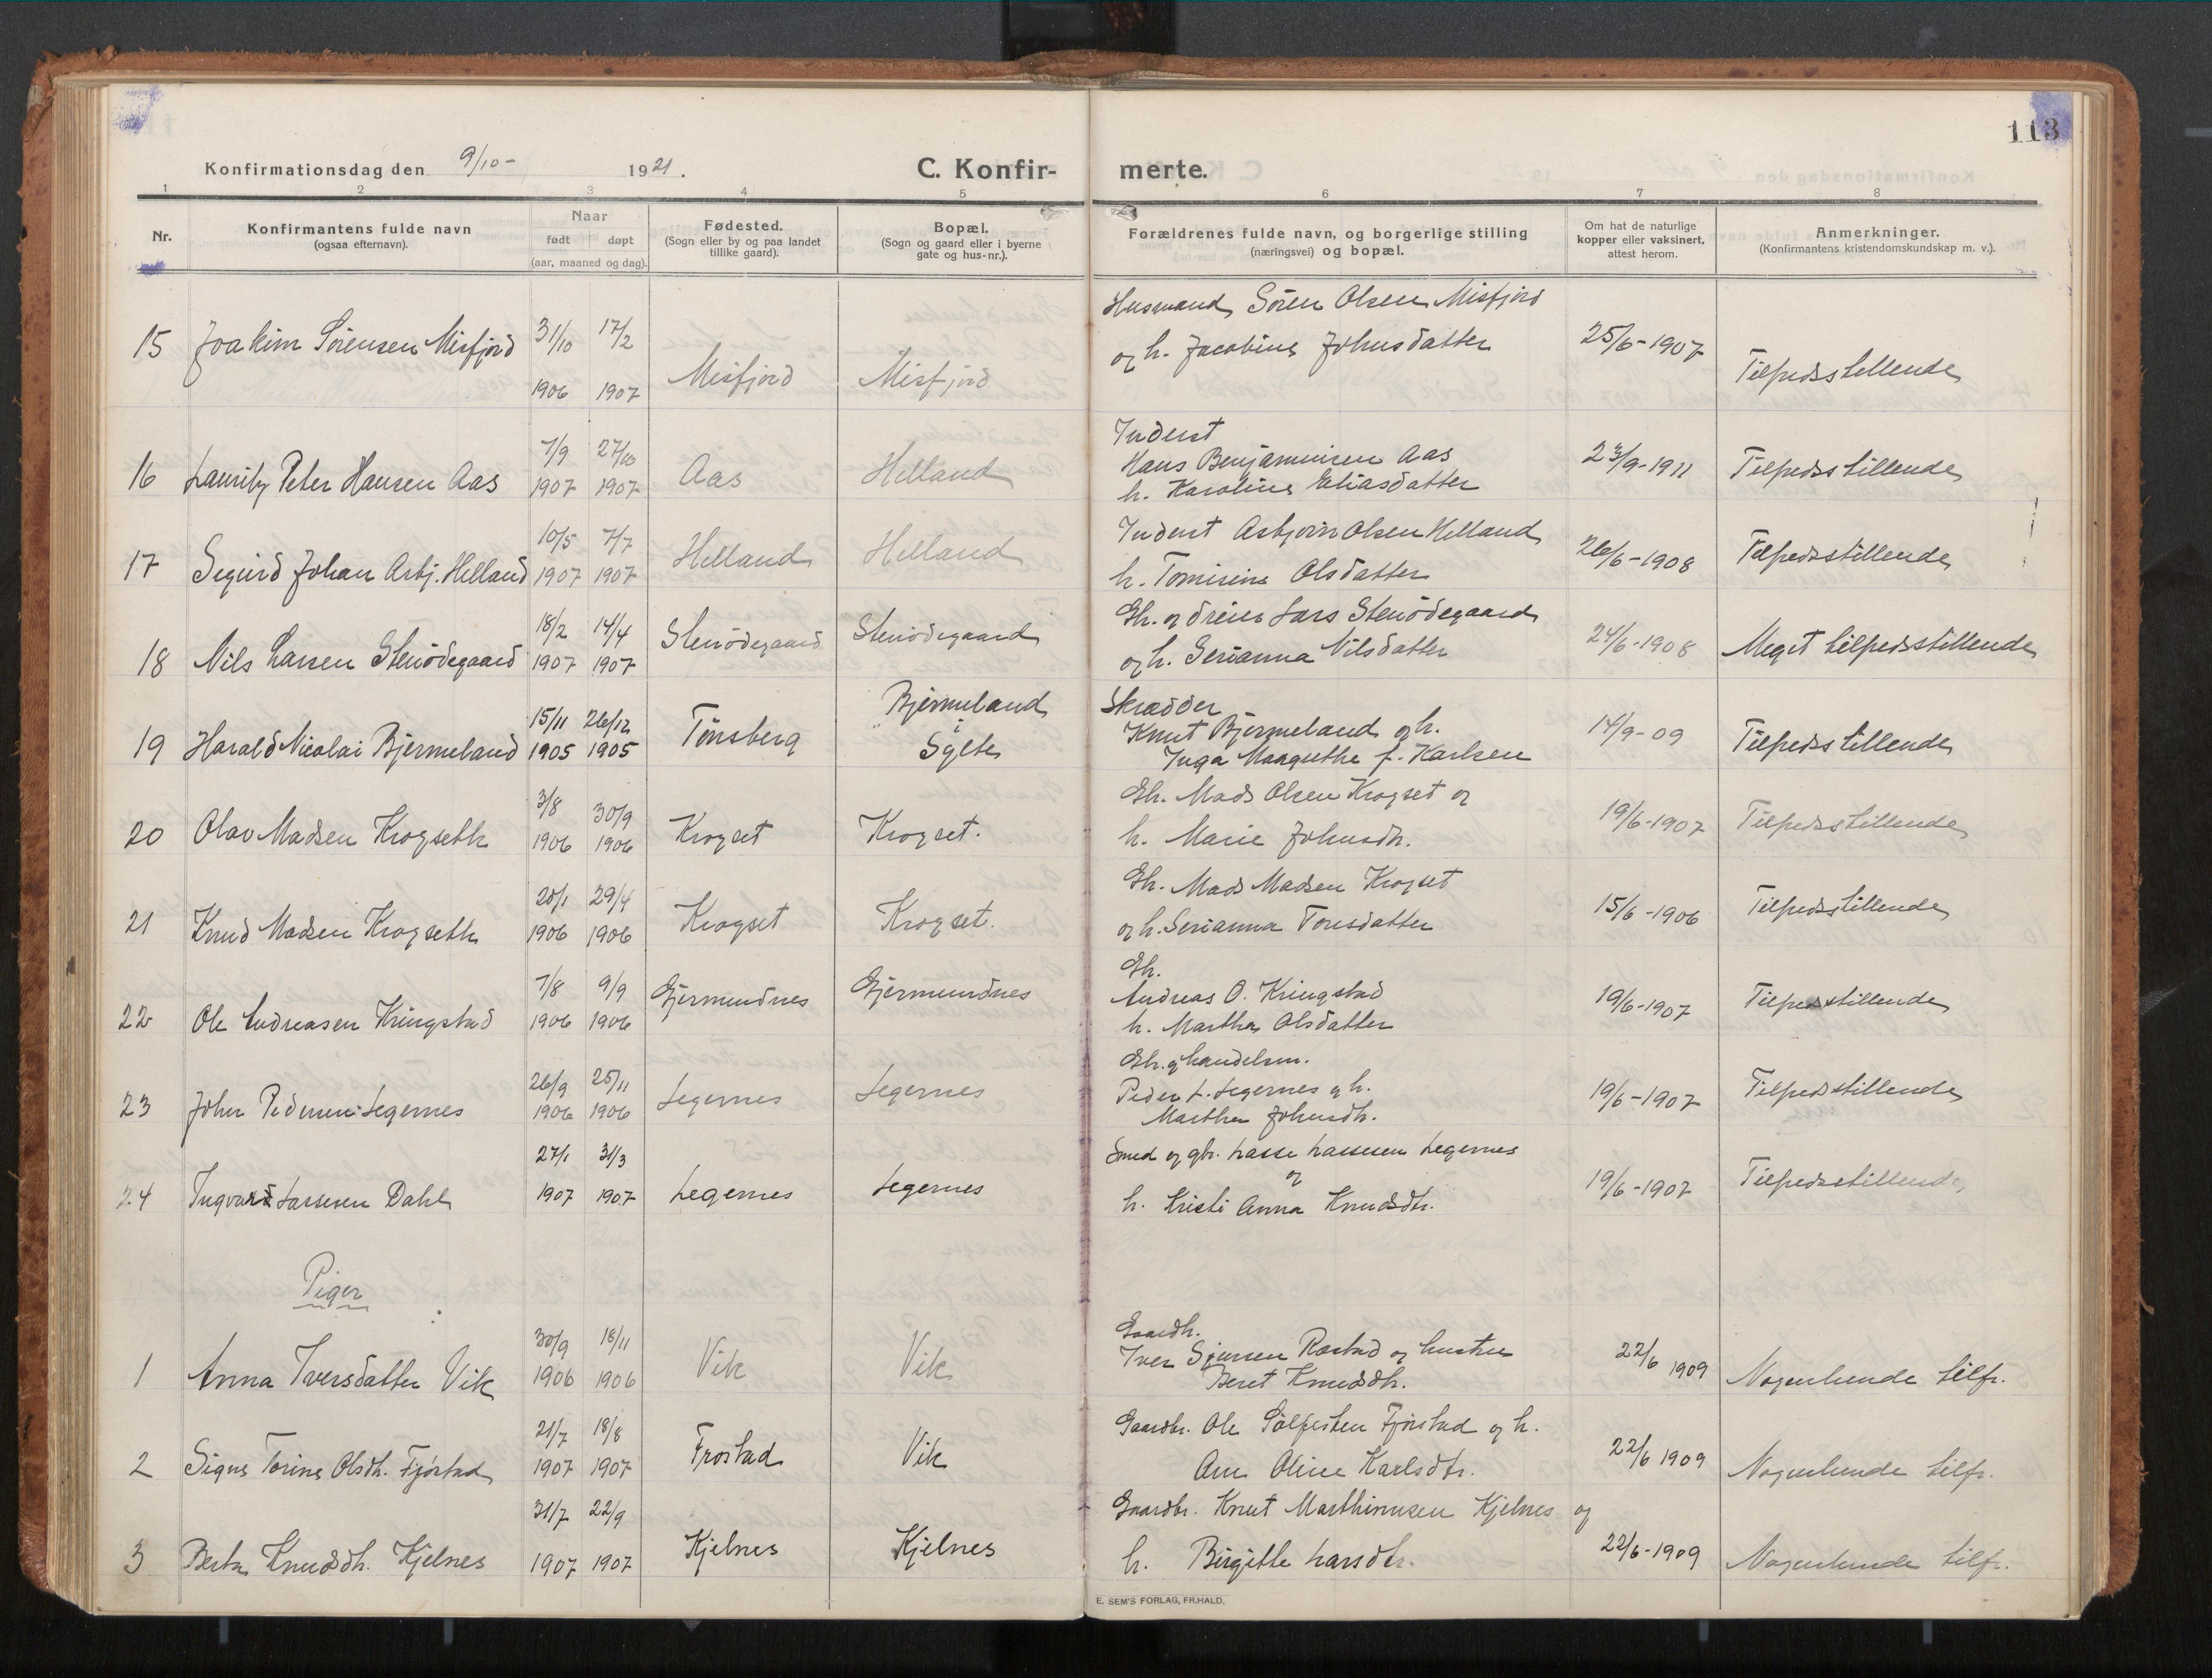 113
Konfirmationsdag den 9/10- 1921.
C. Konfir- merte.
1 2 3 4 5 6 7 8
Nr.
Konfirmantens fulde navn
(ogsaa efternavn).
Naar
født døpt
(aar, maaned og dag).
Fødested.
(Sogn eller by og paa landet
tillike gaard).
Bopæl.
(Sogn og gaard eller i byerne
gate og hus-nr.).
Forældrenes fulde navn, og borgerlige stilling
(næringsvei) og bopæl.
Om hat de naturlige
kopper eller vaksinert,
attest herom.
Anmerkninger.
(Konfirmantens kristendomskundskap m. v.).
Husmand Sören Olsen Misfjord
15 Joakim Sörensen Misfjord 31/10 17/2 og h. Jacobine Johnsdatter 25/6-1907
1906 1907 Misfjord Misfjord Tilfredsstillende
Inderst
7/9 27/10 Hans Benjaminsen Aas
16 Lauritz Peter Hansen Aas 1907 1907 Aas Helland h. Karoline Eliasdatter 23/9-1911 Tilfredsstillende
10/5 7/7 Inderst Asbjørn Olsen Helland
17 Sigurd Johan Asbj. Helland 1907 1907 Helland Helland h. Tomisine Olsdatter 26/6-1908 Tilfredsstillende
18/2 14/4 Gbr. og dreier Lars Stenödegaard
18 Nils Larsen Stenödegaard 1907 1907 Stenödegaard Stenödegaard og h. Serianna Nilsdatter 24/6-1908 Meget tilfredsstillende
Bjermeland Skrædder
15/11 26/12 i Knut Bjermeland og h.
19 Harald Nicolai Bjermeland 1905 1905 Tönsberg Sylte Inga Margrethe f. Karlsen 14/9-09 Tilfredsstillende
3/8 30/9 Gbr. Mads Olsen Krogset og
20 Olav Madsen Krogseth 1906 1906 Krogset Krogset. h. Marie Johnsdtr. 19/6-1907 Tilfredsstillende
20/1 29/4 Gbr. Mads Madsen Krogset
21 Knud Madsen Krogseth 1906 1906 Krogset Krogset. og h. Serianna Toresdatter 15/6-1906 Tilfredsstillende
Gbr.
7/8 9/9 Andreas O. Kringstad
22 Ole Andreasen Kringstad 1906 1906 Gjermundnes Gjermundnes h. Martha Olsdatter 19/6-1907 Tilfredsstillende
Gbr. og handelsm.
26/9 25/11 Peder L. Legernes og h.
23 John Pedersen Legernes 1906 1906 Legernes Legernes Martha Johnsdtr. 19/6-1907 Tilfredsstillende
27/1 31/3 Smed og gbr. Lasse Lassesen Legernes
og
24 Ingvard Lassesen Dahl 1907 1907 Legernes Legernes h. Kristi Anna Knudsdtr. 19/6-1907 Tilfredsstillende
Piger
Gaardbr.
30/9 18/11 Iver Sjursen Rostad og hustru
1 Anna Iversdatter Vik 1906 1906 Vik Vik Beret Knudsdtr. 22/6 1909 Nogenlunde tilfr.
21/7 18/8 Gaardbr. Ole Fjörstad og h.
2 Signe Torine Olsdtr. Fjörstad 1907 1907 Frostad Vik Ane Oline Karlsdtr. 22/6 1909 Nogenlunde tilfr.
31/7 22/9 Gaardbr. Knut Marthinusen Kjelnes og
3 Berta Knudsdtr. Kjelnes 1907 1907 Kjelnes Kjelnes h. Birgitte Larsdtr. 22/6-1909 Nogenlunde tilfr.
E. SEM'S FORLAG, FR.HALD.